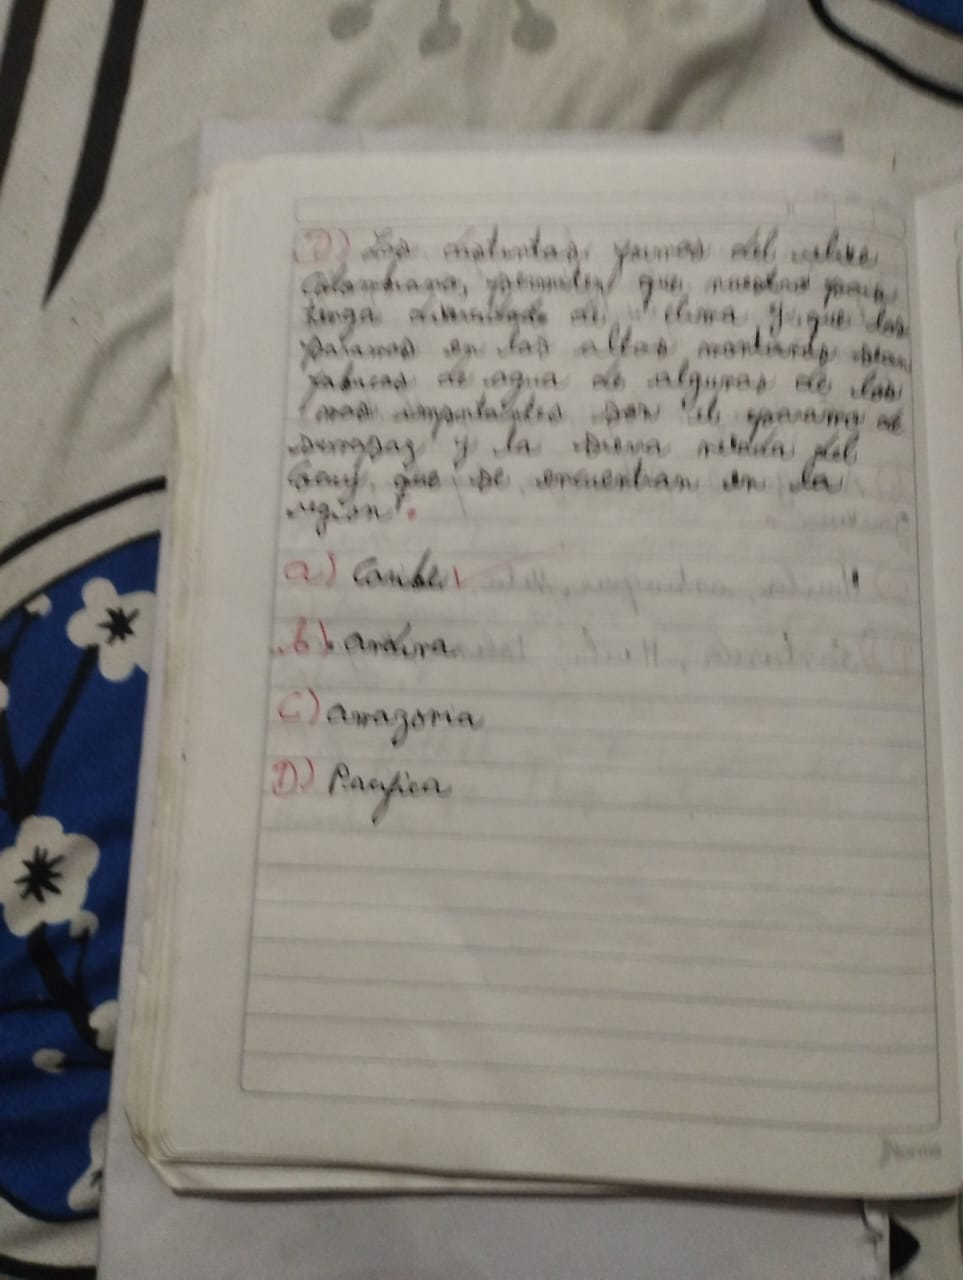 D) Las distintas formas del relieve
Colombiano, permiten que nuestro pais
tenga diversidad de clima y que los
paramos en las altas montañas sean
fabricas de agua de algunas de las
mas importantes son el paramo de
sumapaz y la sierra nevada del
Cocuy que se encuentran en la
region.
a) Caribe
b) andina
C) amazonia
D) Pacifica
Norma